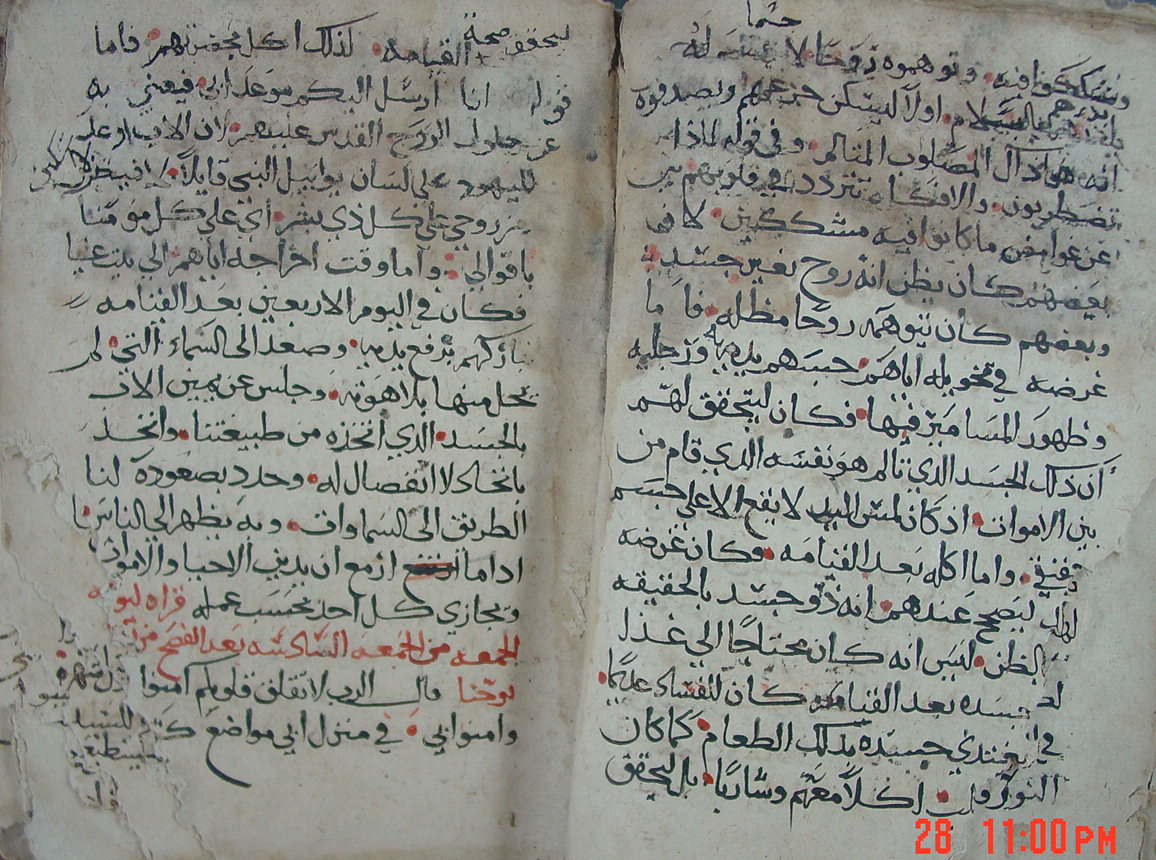 حتما
ويشككوا فيه وتوهموه روحا لا
بالسلام اولا ليسكن حزعهم ويصدقوه
انه هو ذاك المصلوب المتالم وفي قوله لماذا
تضطربون والافكار تتردد في قلوبهم
عن غوامض ما كانوا فيه مشككين لان
بعضهم كان يظن انه روح بغير جسد
وبعضهم كان يتوهمه روحا مظله فاما
غرضه في تخويله اياهم جسهم يديه ورجليه
وظهور المسامير فيها فكان ليتحقق لهم
أن ذلك الجسد الذي تالم هو نفسه الذي قام من
بين الاموات اذ كان لمس اليد لا يقع الا على جسم
واما اكله بعد القيامه فكان غرضه
ليصح عندهم انه ذو جسد بالحقيقه
لا بالظن ليس انه كان محتاجا الي غذا
جسده بعد القيامه كان للفساد عديما
يغتذي جسده بذلك الطعام كما كان
اكلا معهم وشاربا بل ليحقق
ليحقق صحة القيامه لذلك اكل بحضرتهم فاما
قوله انا ارسل اليكم موعد ابي فيعني به
عن حلول الروح القدس عليهم لان الاب اوعد
لليهود علي لسان يوابيل النبي قايلا
من روحي علي كل ذي بشر اي علي كل مومن
باقوالي واما وقت اخراجه اياهم الي بيت عنيا
فكان في اليوم الاربعين بعد القيامه
باركهم برفع يديه وصعد الي السماء التي لم
يخل منها بلاهوته وجلس عن يمين الاب
بالجسد الذي اتخذه من طبيعتنا واتحد
باتحاد لا انفصال له وحدد بصعوده لنا
الطريق الي السماوات وبه يظهر الي الناس
اذا ما ازمع ان يدين الاحيا والاموات
ويجازي كل احد بحسب عمله قراه ليوم
الجمعه من الجمعه السادسه بعد الفصح من
يوحنا قال الرب لا تقلق قلوبكم امنوا
وامنوا بي في منزل ابي مواضع
28 11:00 PM